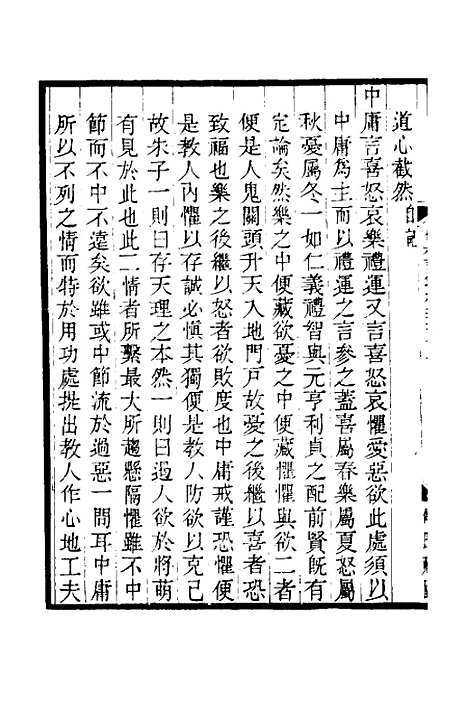 道心截然自記
中庸言喜怒哀樂禮運又言喜怒哀懼愛惡欲此處須以
中庸為主而以禮運之言參之蓋喜屬春樂屬夏怒屬
秋憂屬冬一如仁義禮智與元亨利貞之配前賢既有
定論矣然樂之中便藏欲憂之中便藏懼懼與欲二者
便是人鬼關頭升天入地門戸故憂之後繼以喜者恐
致福也樂之後繼以怒者欲敗度也中庸戒謹恐懼便
是教人內懼以存誠必慎其獨便是教人防欲以克己
故朱子一則曰存天理之本然一則曰遏人欲於將萌
有見於此也此二情者所繫最大所趨懸隔懼雖不中
節而不中不遠矣欲雖或中節流於過惡一問耳中庸
所以不列之情而特於用功處提出教人作心地工夫